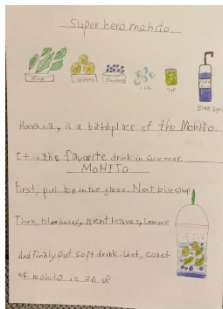 Super hero mohito
Mint
Lemons
Blueberry
ice
7up
Blue syrup
Havana, is a birthplace of the Mohito.
It is the favorite drink in summer.
MoHITo
First, put ice in the glass. Next blue syrup
Then, blueberry, ment leaves, lemons
And finally put soft drink. Last, coast
of mohito is 20